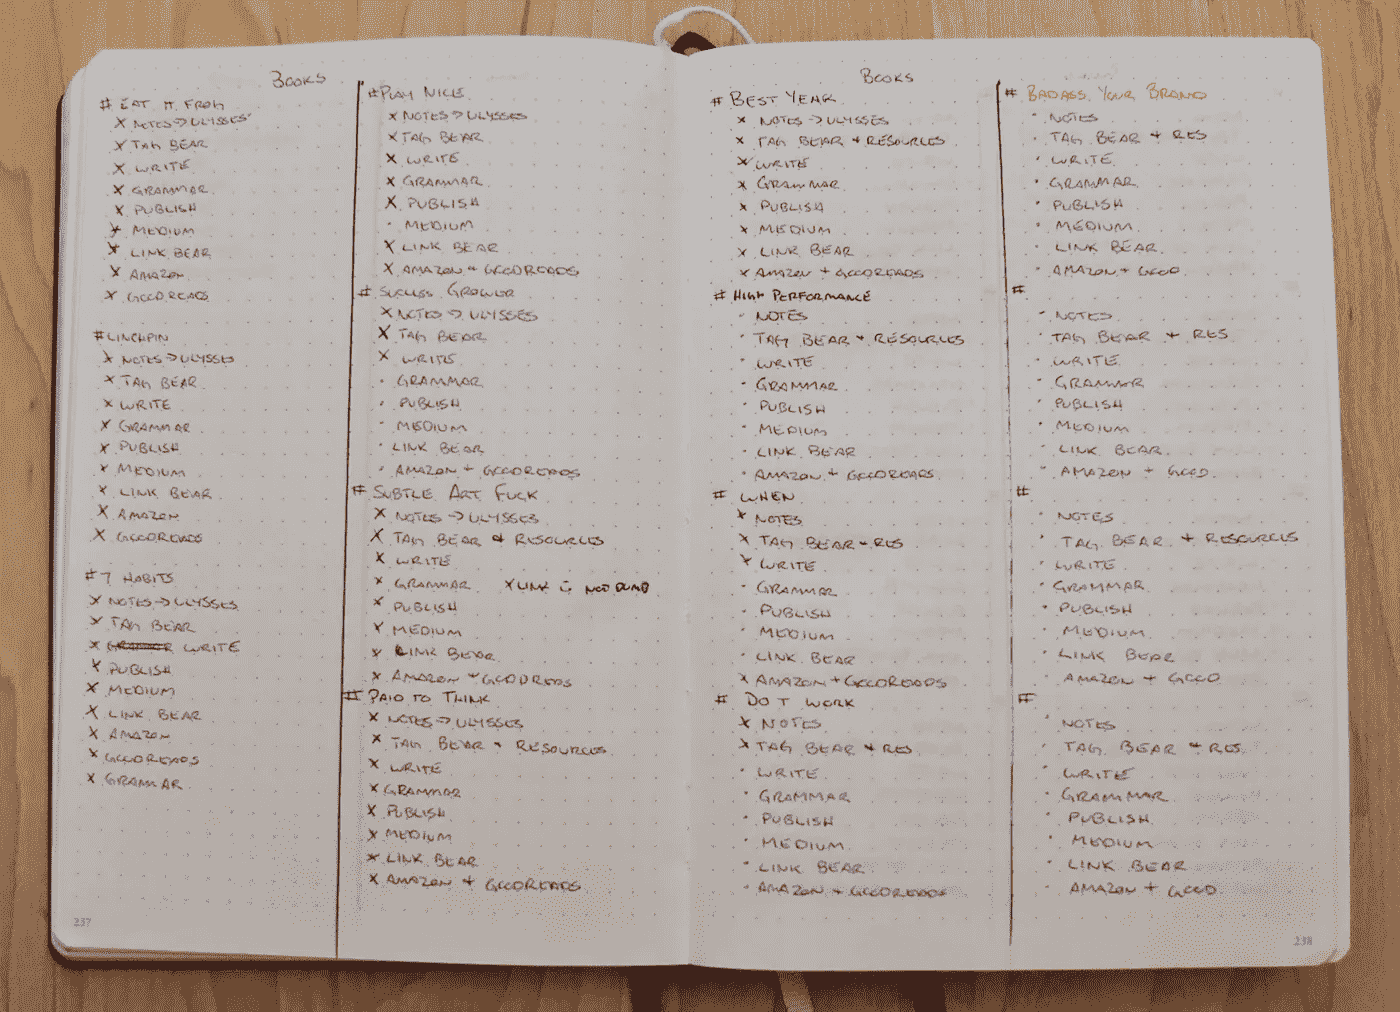 BOOKS
# EAT THE FROG
x NOTES -> ULYSSES
x TAG BEAR
x WRITE
x GRAMMAR
x PUBLISH
x MEDIUM
x LINK BEAR
x AMAZON
x GOODREADS
# LINCHPIN
x NOTES -> ULYSSES
x TAG BEAR
x WRITE
x GRAMMAR
x PUBLISH
x MEDIUM
x LINK BEAR
x AMAZON
x GOODREADS
# 7 HABITS
x NOTES -> ULYSSES
x TAG BEAR
x WRITE
x PUBLISH
x MEDIUM
x LINK BEAR
x AMAZON
x GOODREADS
x GRAMMAR
237
# PLAY NICE
x NOTES -> ULYSSES
x TAG BEAR
x WRITE
x GRAMMAR
x PUBLISH
· MEDIUM
x LINK BEAR
x AMAZON + GOODREADS
# SUCCESS GROWER
x NOTES -> ULYSSES
x TAG BEAR
x WRITE
· GRAMMAR
· PUBLISH
· MEDIUM
· LINK BEAR
· AMAZON + GOODREADS
# SUBTLE ART FUCK
x NOTES -> ULYSSES
x TAG BEAR + RESOURCES
x WRITE
x GRAMMAR x LINK NOT DUMB
x PUBLISH
x MEDIUM
x LINK BEAR
x AMAZON + GOODREADS
# PAID TO THINK
x NOTES -> ULYSSES
x TAG BEAR + RESOURCES
x WRITE
x GRAMMAR
x PUBLISH
x MEDIUM
x LINK BEAR
x AMAZON + GOODREADS
BOOKS
# BEST YEAR
x NOTES -> ULYSSES
x TAG BEAR + RESOURCES
x WRITE
x GRAMMAR
x PUBLISH
x MEDIUM
x LINK BEAR
x AMAZON + GOODREADS
# HIGH PERFORMANCE
· NOTES
· TAG BEAR + RESOURCES
· WRITE
· GRAMMAR
· PUBLISH
· MEDIUM
· LINK BEAR
· AMAZON + GOODREADS
# WHEN
x NOTES
x TAG BEAR + RES
x WRITE
· GRAMMAR
· PUBLISH
· MEDIUM
· LINK BEAR
x AMAZON + GOODREADS
# DO T WORK
x NOTES
x TAG BEAR + RES
· WRITE
· GRAMMAR
· PUBLISH
· MEDIUM
· LINK BEAR
· AMAZON + GOODREADS
# BADASS YOUR BRAND
· NOTES
· TAG BEAR + RES
· WRITE
· GRAMMAR
· PUBLISH
· MEDIUM
· LINK BEAR
· AMAZON + GOOD
#
· NOTES
· TAG BEAR + RES
· WRITE
· GRAMMAR
· PUBLISH
· MEDIUM
· LINK BEAR
· AMAZON + GOOD
#
· NOTES
· TAG BEAR + RESOURCES
· WRITE
· GRAMMAR
· PUBLISH
· MEDIUM
· LINK BEAR
· AMAZON + GOOD
#
· NOTES
· TAG BEAR + RES
· WRITE
· GRAMMAR
· PUBLISH
· MEDIUM
· LINK BEAR
· AMAZON + GOOD
238